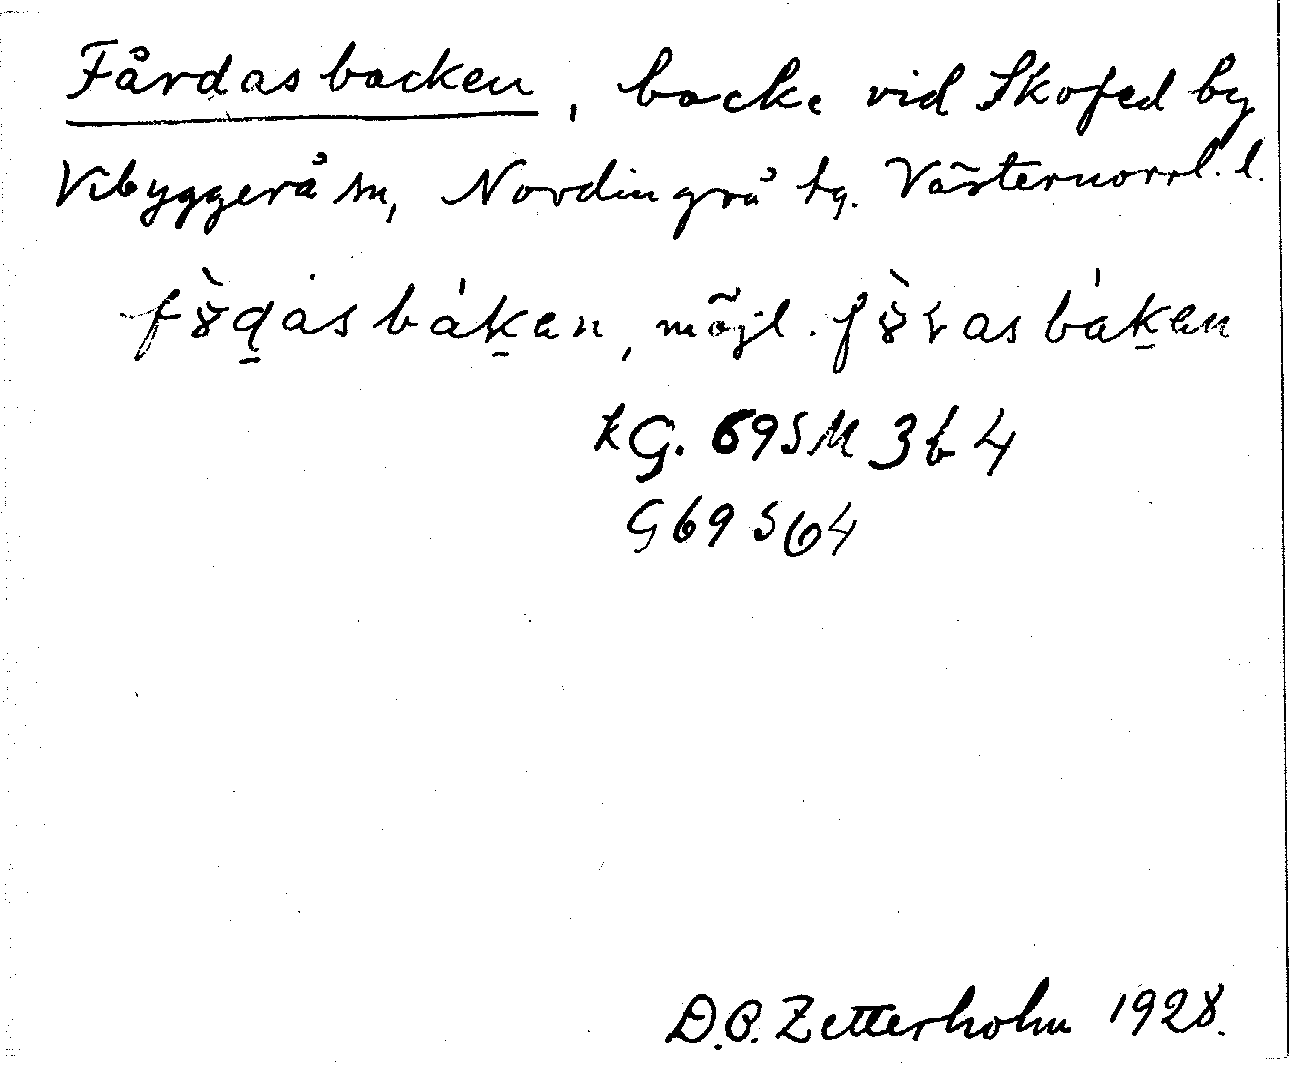 Fårdasbacken, backe vid Skofed by
Vibyggerå sn, Nordingrå tg. Västernorrl. l.
möjl.
kG. 69 S M 3 b 4
G 69 S 64
D.O. Zetterholm 1928.